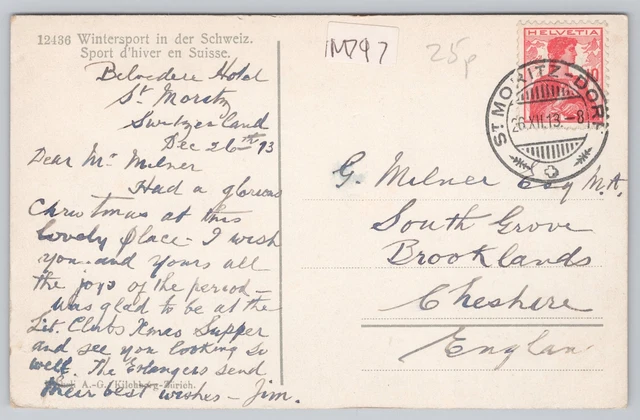 12436 Wintersport in der Schweiz.
Sport d'hiver en Suisse.
Belvedere Hotel
St Moritz
Switzerland
Dec 26th 13
Dear Mr Milner
Had a glorious
Christmas at this
lovely place - I wish
you and yours all
the joys of the period -
was glad to be at the
Lit. Clubs Xmas Supper
and see you looking so
well. The Erlangers send
their best wishes - Jim.
A.-G. Kilchberg-Zürich.
1M797
25p
HELVETIA
10
ST MORITZ-DORF
26.XII.13.-8
G. Milner Esq M.A.
South Grove
Brooklands
Cheshire
England